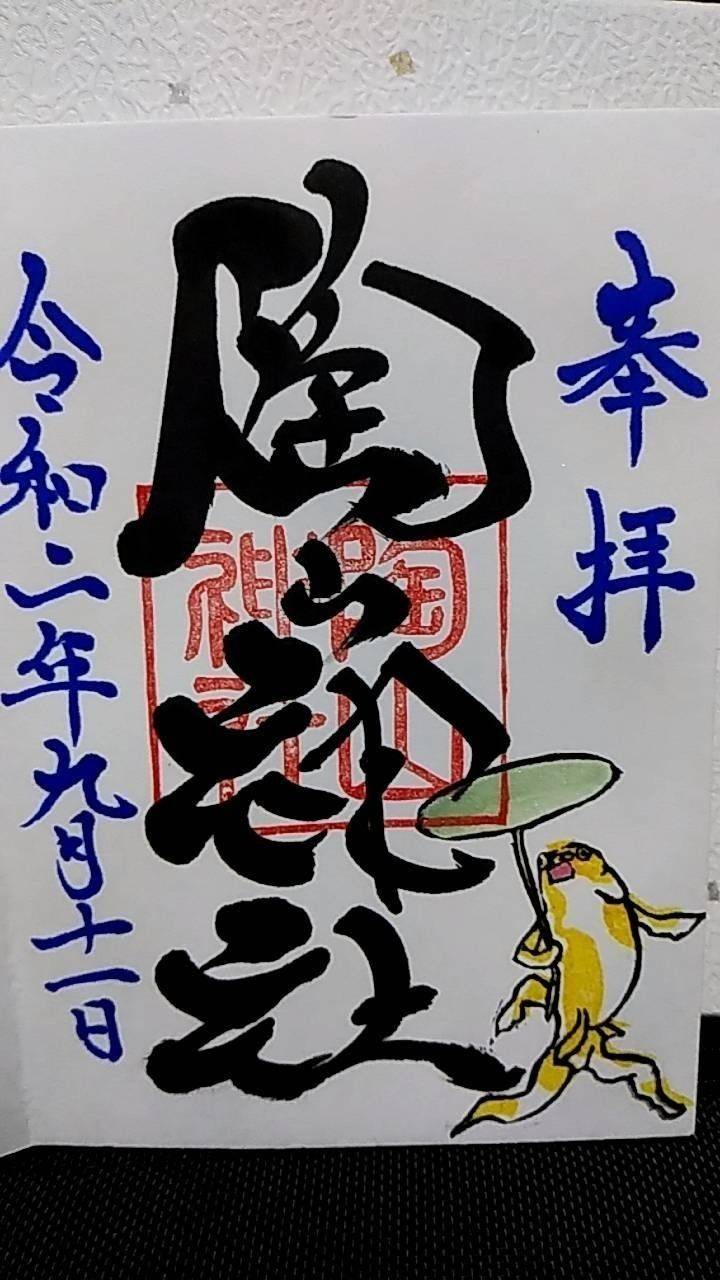 奉拝
陶山神社
陶山神社
令和二年九月十一日